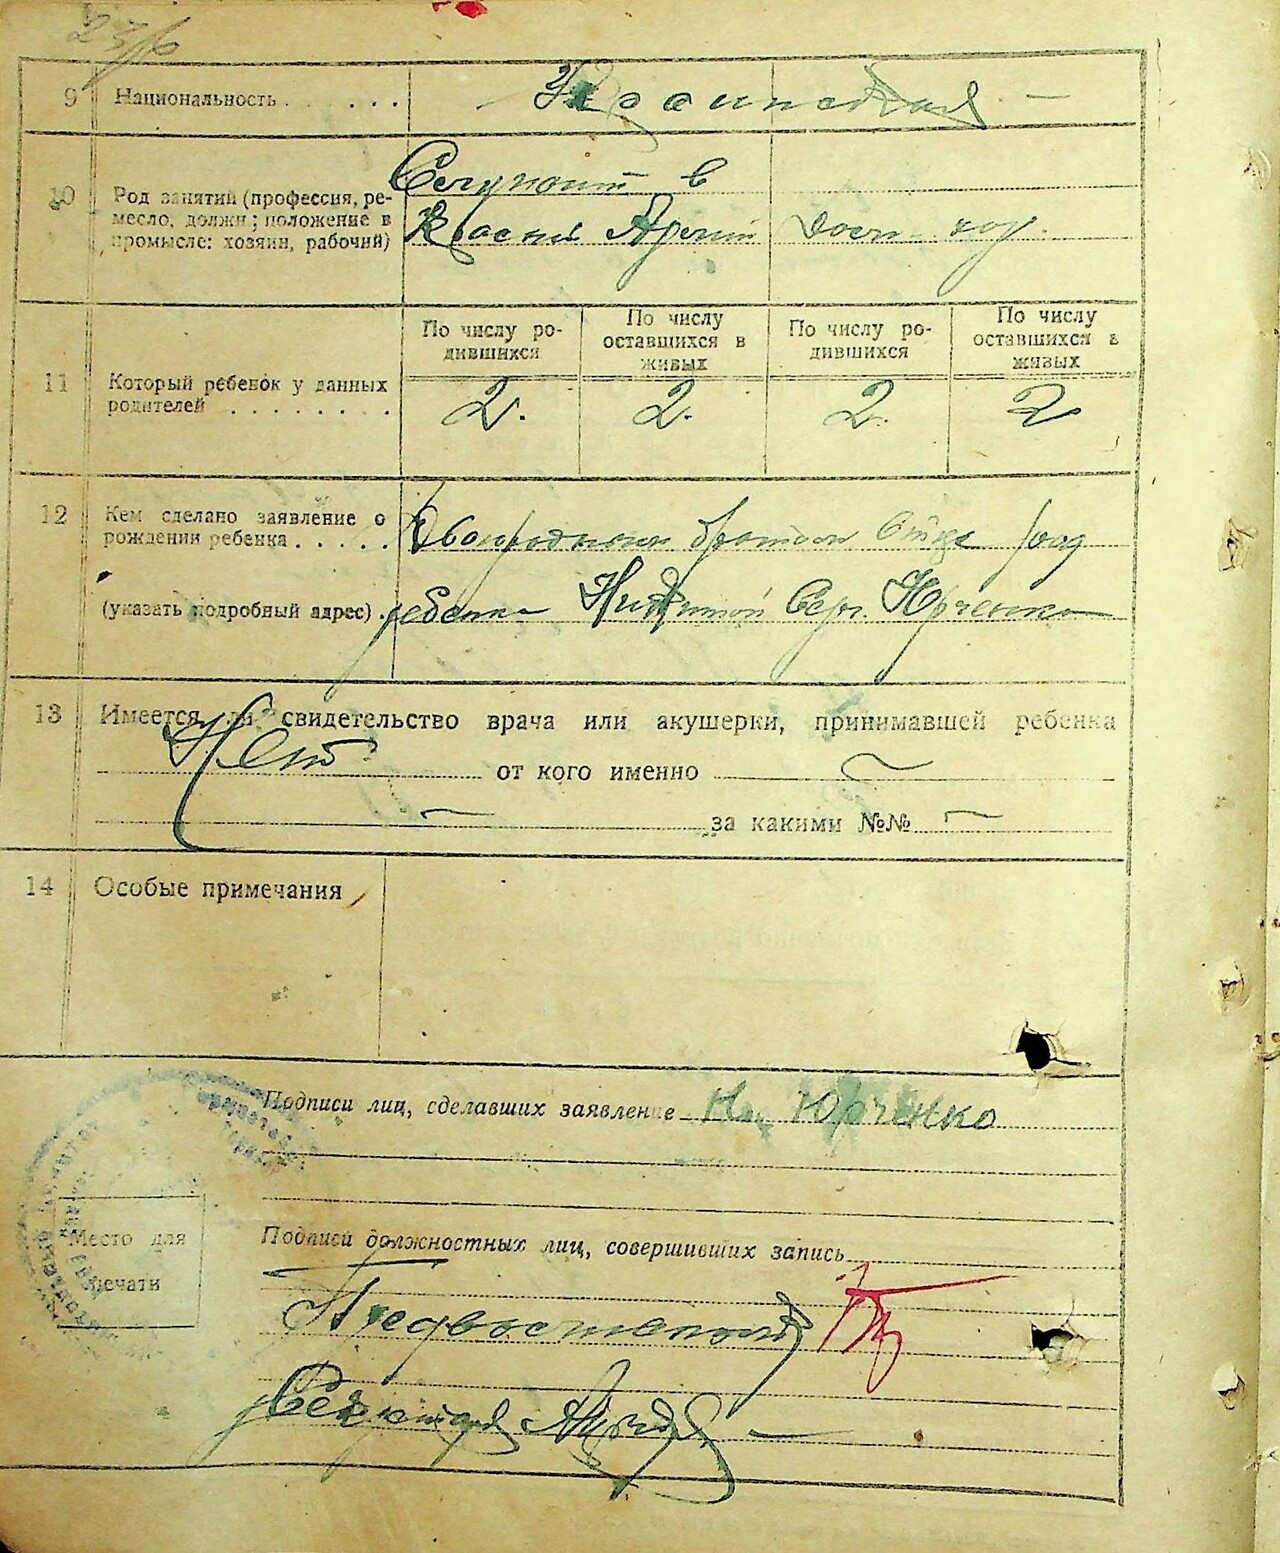 23/6
9 Национальность . . . . . . - Украинская -
Служит в
10 Род занятий (профессия, ре-
месло, должн; положение в
промысле: хозяин, рабочий)
Красной Армии дом. хоз.
По числу ро- По числу По числу ро- По числу
дившихся оставшихся в дившихся оставшихся в
живых живых
11 Который ребенок у данных
родителей . . . . . . . . 2. 2. 2. 2
12 Кем сделано заявление о
рождении ребенка . . . . . Двоюродным братом отца
(указать подробный адрес) . ребенка Никитой Серг. Юрченко
13 Имеется ли свидетельство врача или акушерки, принимавшей ребенка
Нет. от кого именно —
— за какими №№ —
14 Особые примечания
Подписи лиц, сделавших заявление Ник Юрченко
Место для
печати
Подписи должностных лиц, совершивших запись
Секретарь